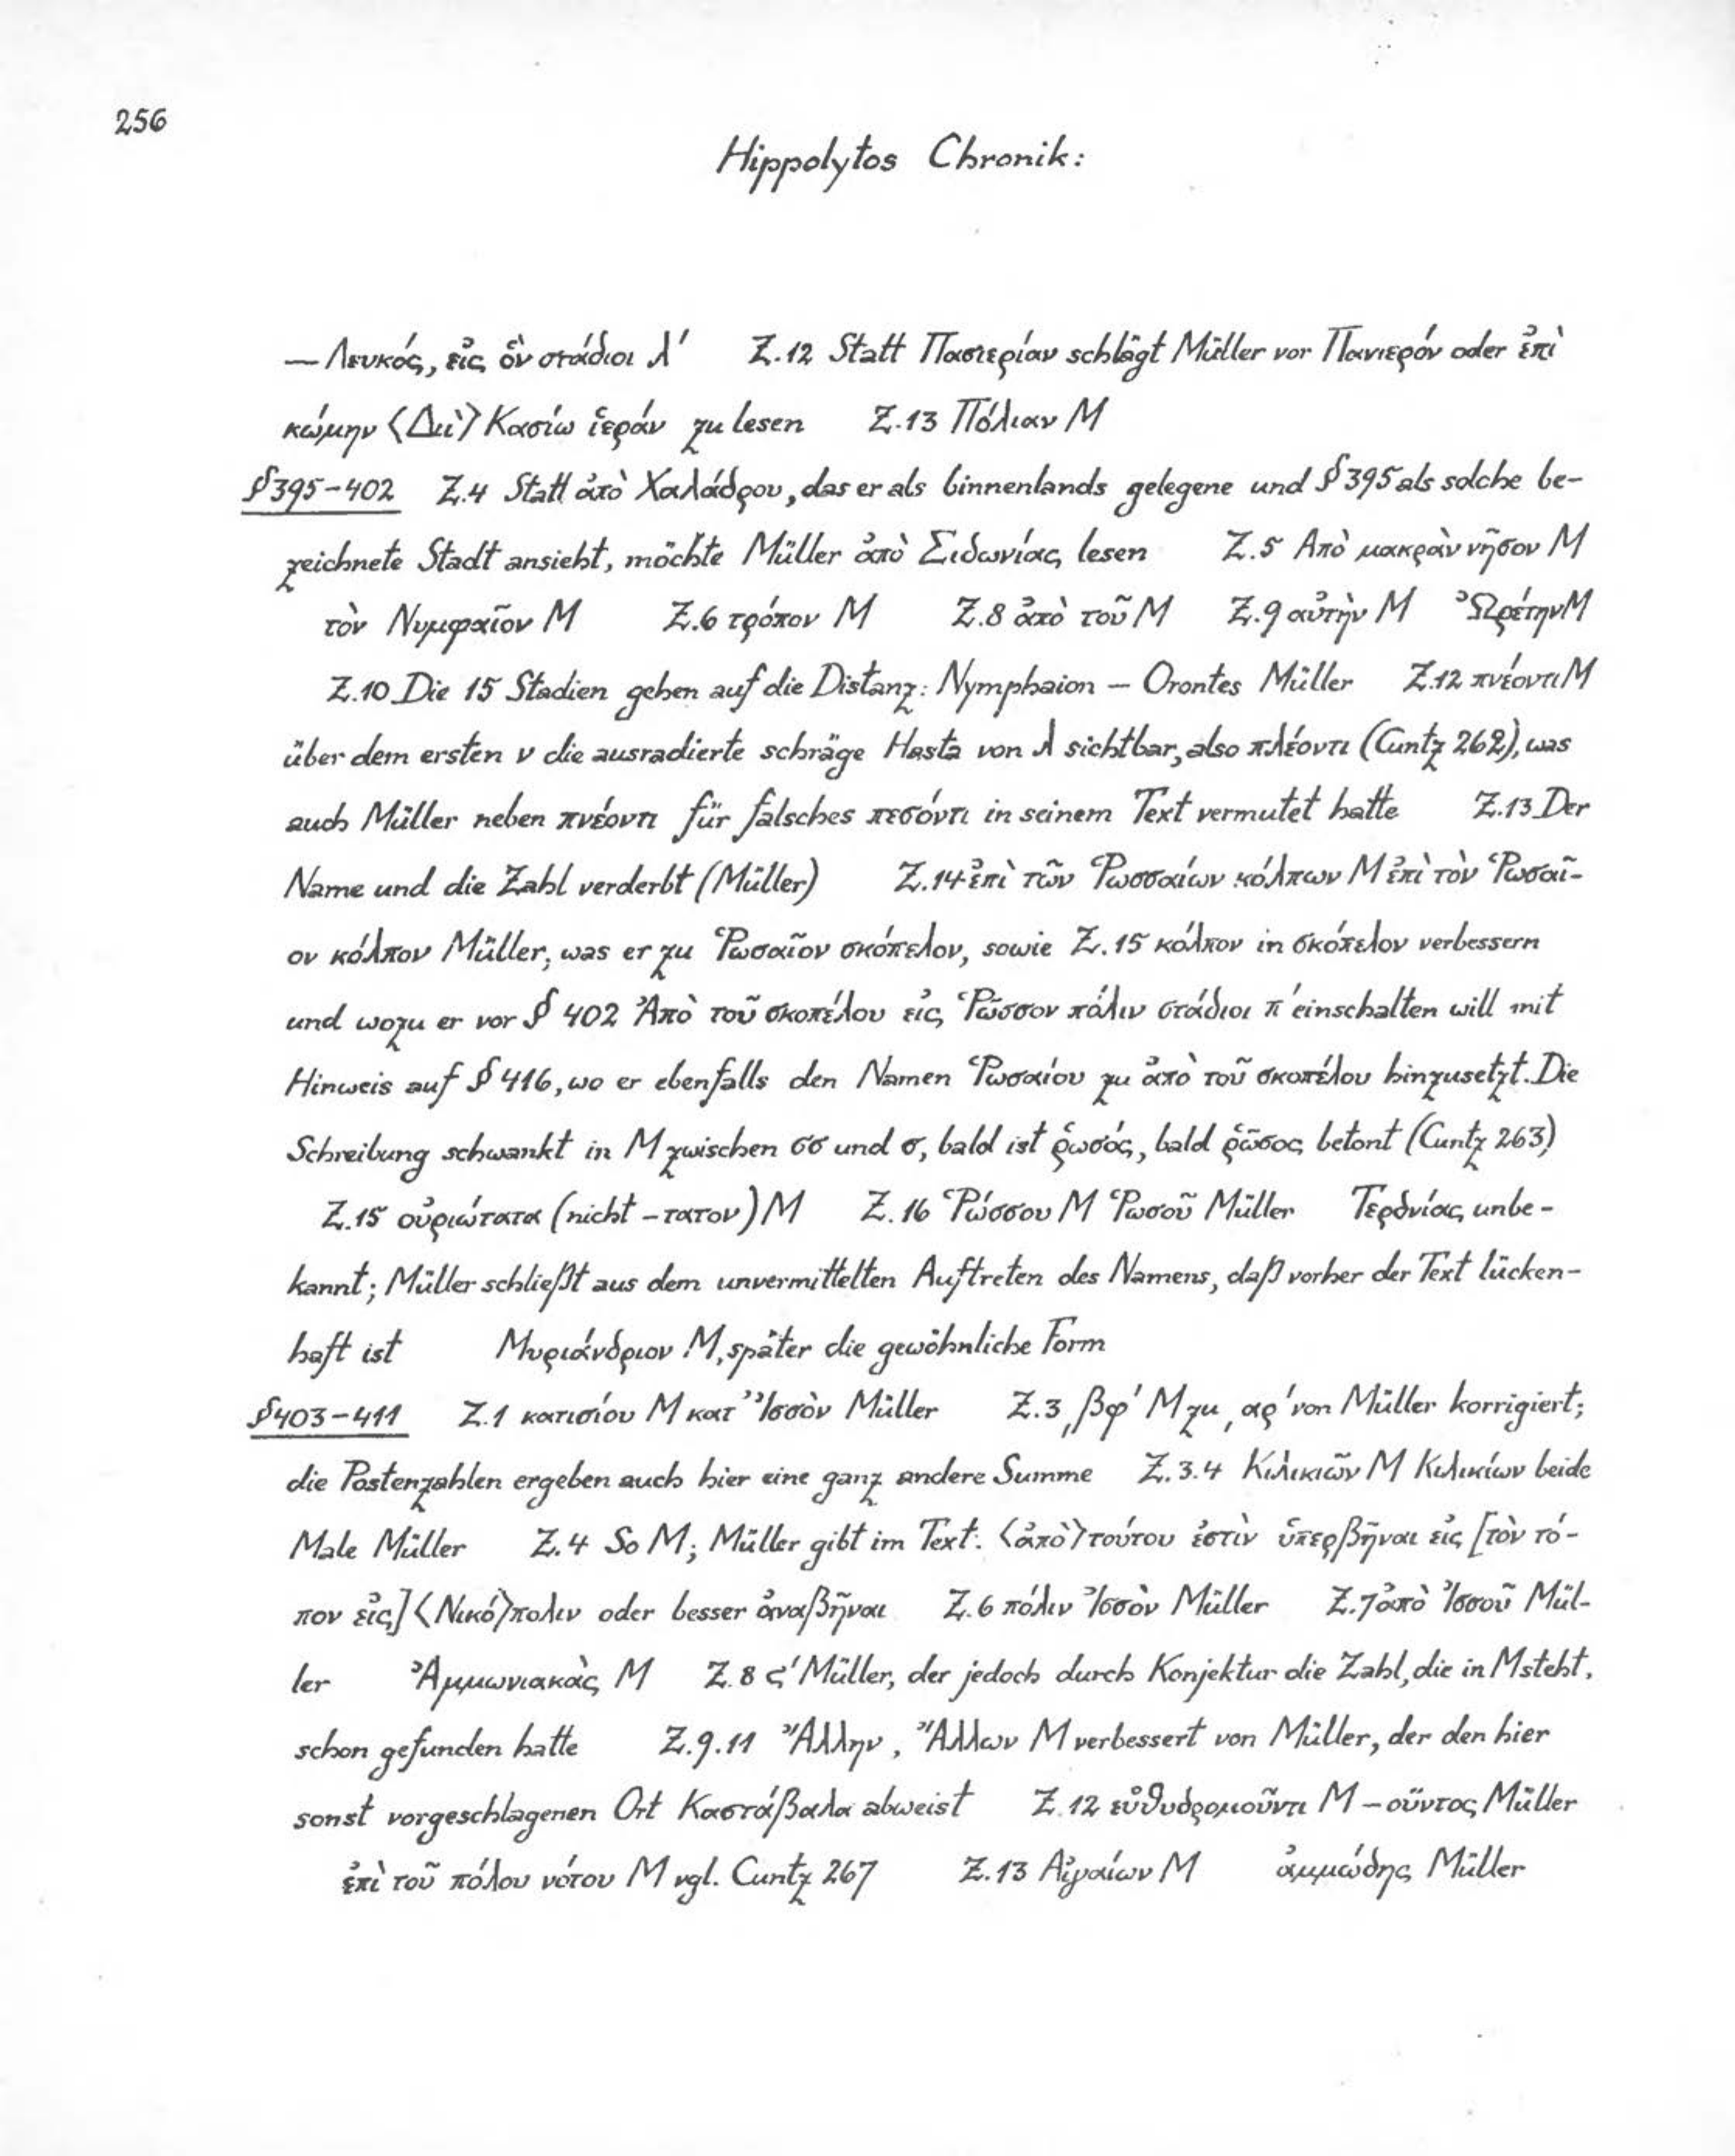 256
Hippolytos Chronik:
— Λευκός, εἰς ὃν στάδιοι λ' Z.12 Statt Παστερίαν schlägt Müller vor Πανιερόν oder ἐπὶ
κώμην ⟨Διὶ⟩ Κασίῳ ἱεράν zu lesen Z.13 Πόλιαν M
§395-402 Z.4 Statt ἀπὸ Χαλάδρου, das er als binnenlands gelegene und §395 als solche be-
zeichnete Stadt ansieht, möchte Müller ἀπὸ Σιδωνίας lesen Z.5 Ἀπὸ μακρὰν νῆσον M
τὸν Νυμφαῖον M Z.6 τρόπον M Z.8 ἀπὸ τοῦ M Z.9 αὐτὴν M Ὠρέτην M
Z.10 Die 15 Stadien gehen auf die Distanz: Nymphaion – Orontes Müller Z.12 πνέοντι M
über dem ersten ν die ausradierte schräge Hasta von λ sichtbar, also πλέοντι (Cuntz 262), was
auch Müller neben πνέοντι für falsches πεσόντι in seinem Text vermutet hatte Z.13 Der
Name und die Zahl verderbt (Müller) Z.14 ἐπὶ τῶν Ῥωσσαίων κόλπων M ἐπὶ τὸν Ῥωσαῖ-
ον κόλπον Müller, was er zu Ῥωσαῖον σκόπελον, sowie Z.15 κόλπον in σκόπελον verbessern
und wozu er vor § 402 Ἀπὸ τοῦ σκοπέλου εἰς Ῥῶσσον πάλιν στάδιοι π' einschalten will mit
Hinweis auf § 416, wo er ebenfalls den Namen Ῥωσαίου zu ἀπὸ τοῦ σκοπέλου hinzusetzt. Die
Schreibung schwankt in M zwischen σσ und σ, bald ist ῥωσός, bald ῥῶσος betont (Cuntz 263)
Z.15 οὐριώτατα (nicht –τατον) M Z.16 Ῥώσσου M Ῥωσοῦ Müller Τερδνίας unbe-
kannt; Müller schließt aus dem unvermittelten Auftreten des Namens, daß vorher der Text lücken-
haft ist Μυριάνδριον M, später die gewöhnliche Form
§403-411 Z.1 κατισίου M κατ' Ἰσσὸν Müller Z.3 ͵βφ' M zu ͵αϛ' von Müller korrigiert;
die Postenzahlen ergeben auch hier eine ganz andere Summe Z.3.4 Κιλικιῶν M Κιλικίων beide
Male Müller Z.4 So M; Müller gibt im Text: ⟨ἀπὸ⟩ τούτου ἐστὶν ὑπερβῆναι εἰς [τὸν τό-
πον εἰς] ⟨Νικό⟩πολιν oder besser ἀναβῆναι Z.6 πόλιν Ἰσσὸν Müller Z.7 ἀπὸ Ἰσσοῦ Mül-
ler Ἀμμωνιακὰς M Z.8 ϛ' Müller, der jedoch durch Konjektur die Zahl, die in M steht,
schon gefunden hatte Z.9.11 Ἄλλην, Ἄλλων M verbessert von Müller, der den hier
sonst vorgeschlagenen Ort Καστάβαλα abweist Z.12 εὐθυδρομοῦντι M –οῦντος Müller
ἐπὶ τοῦ πόλου νότου M vgl. Cuntz 267 Z.13 Αἰγαίων M ἀμμώδης Müller